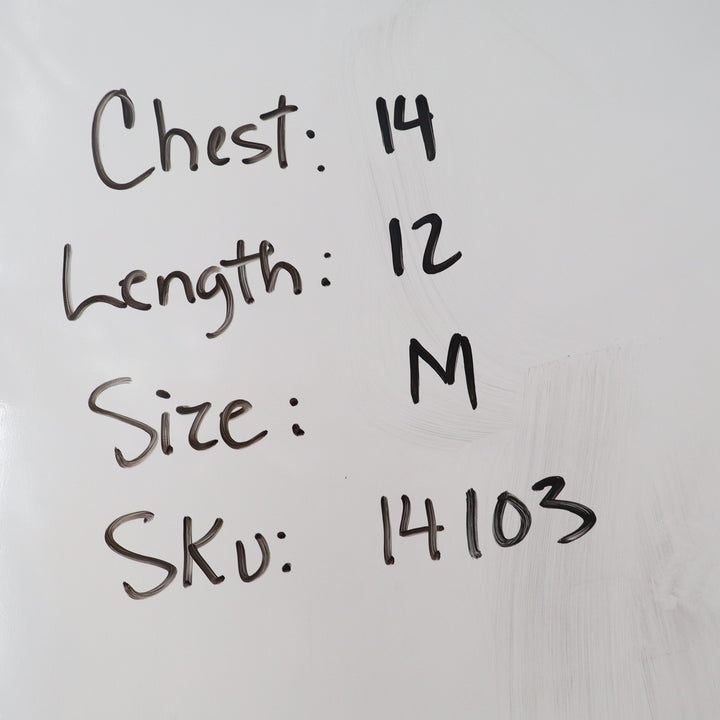 Chest: 14
Length: 12
Size: M
SKU: 14103